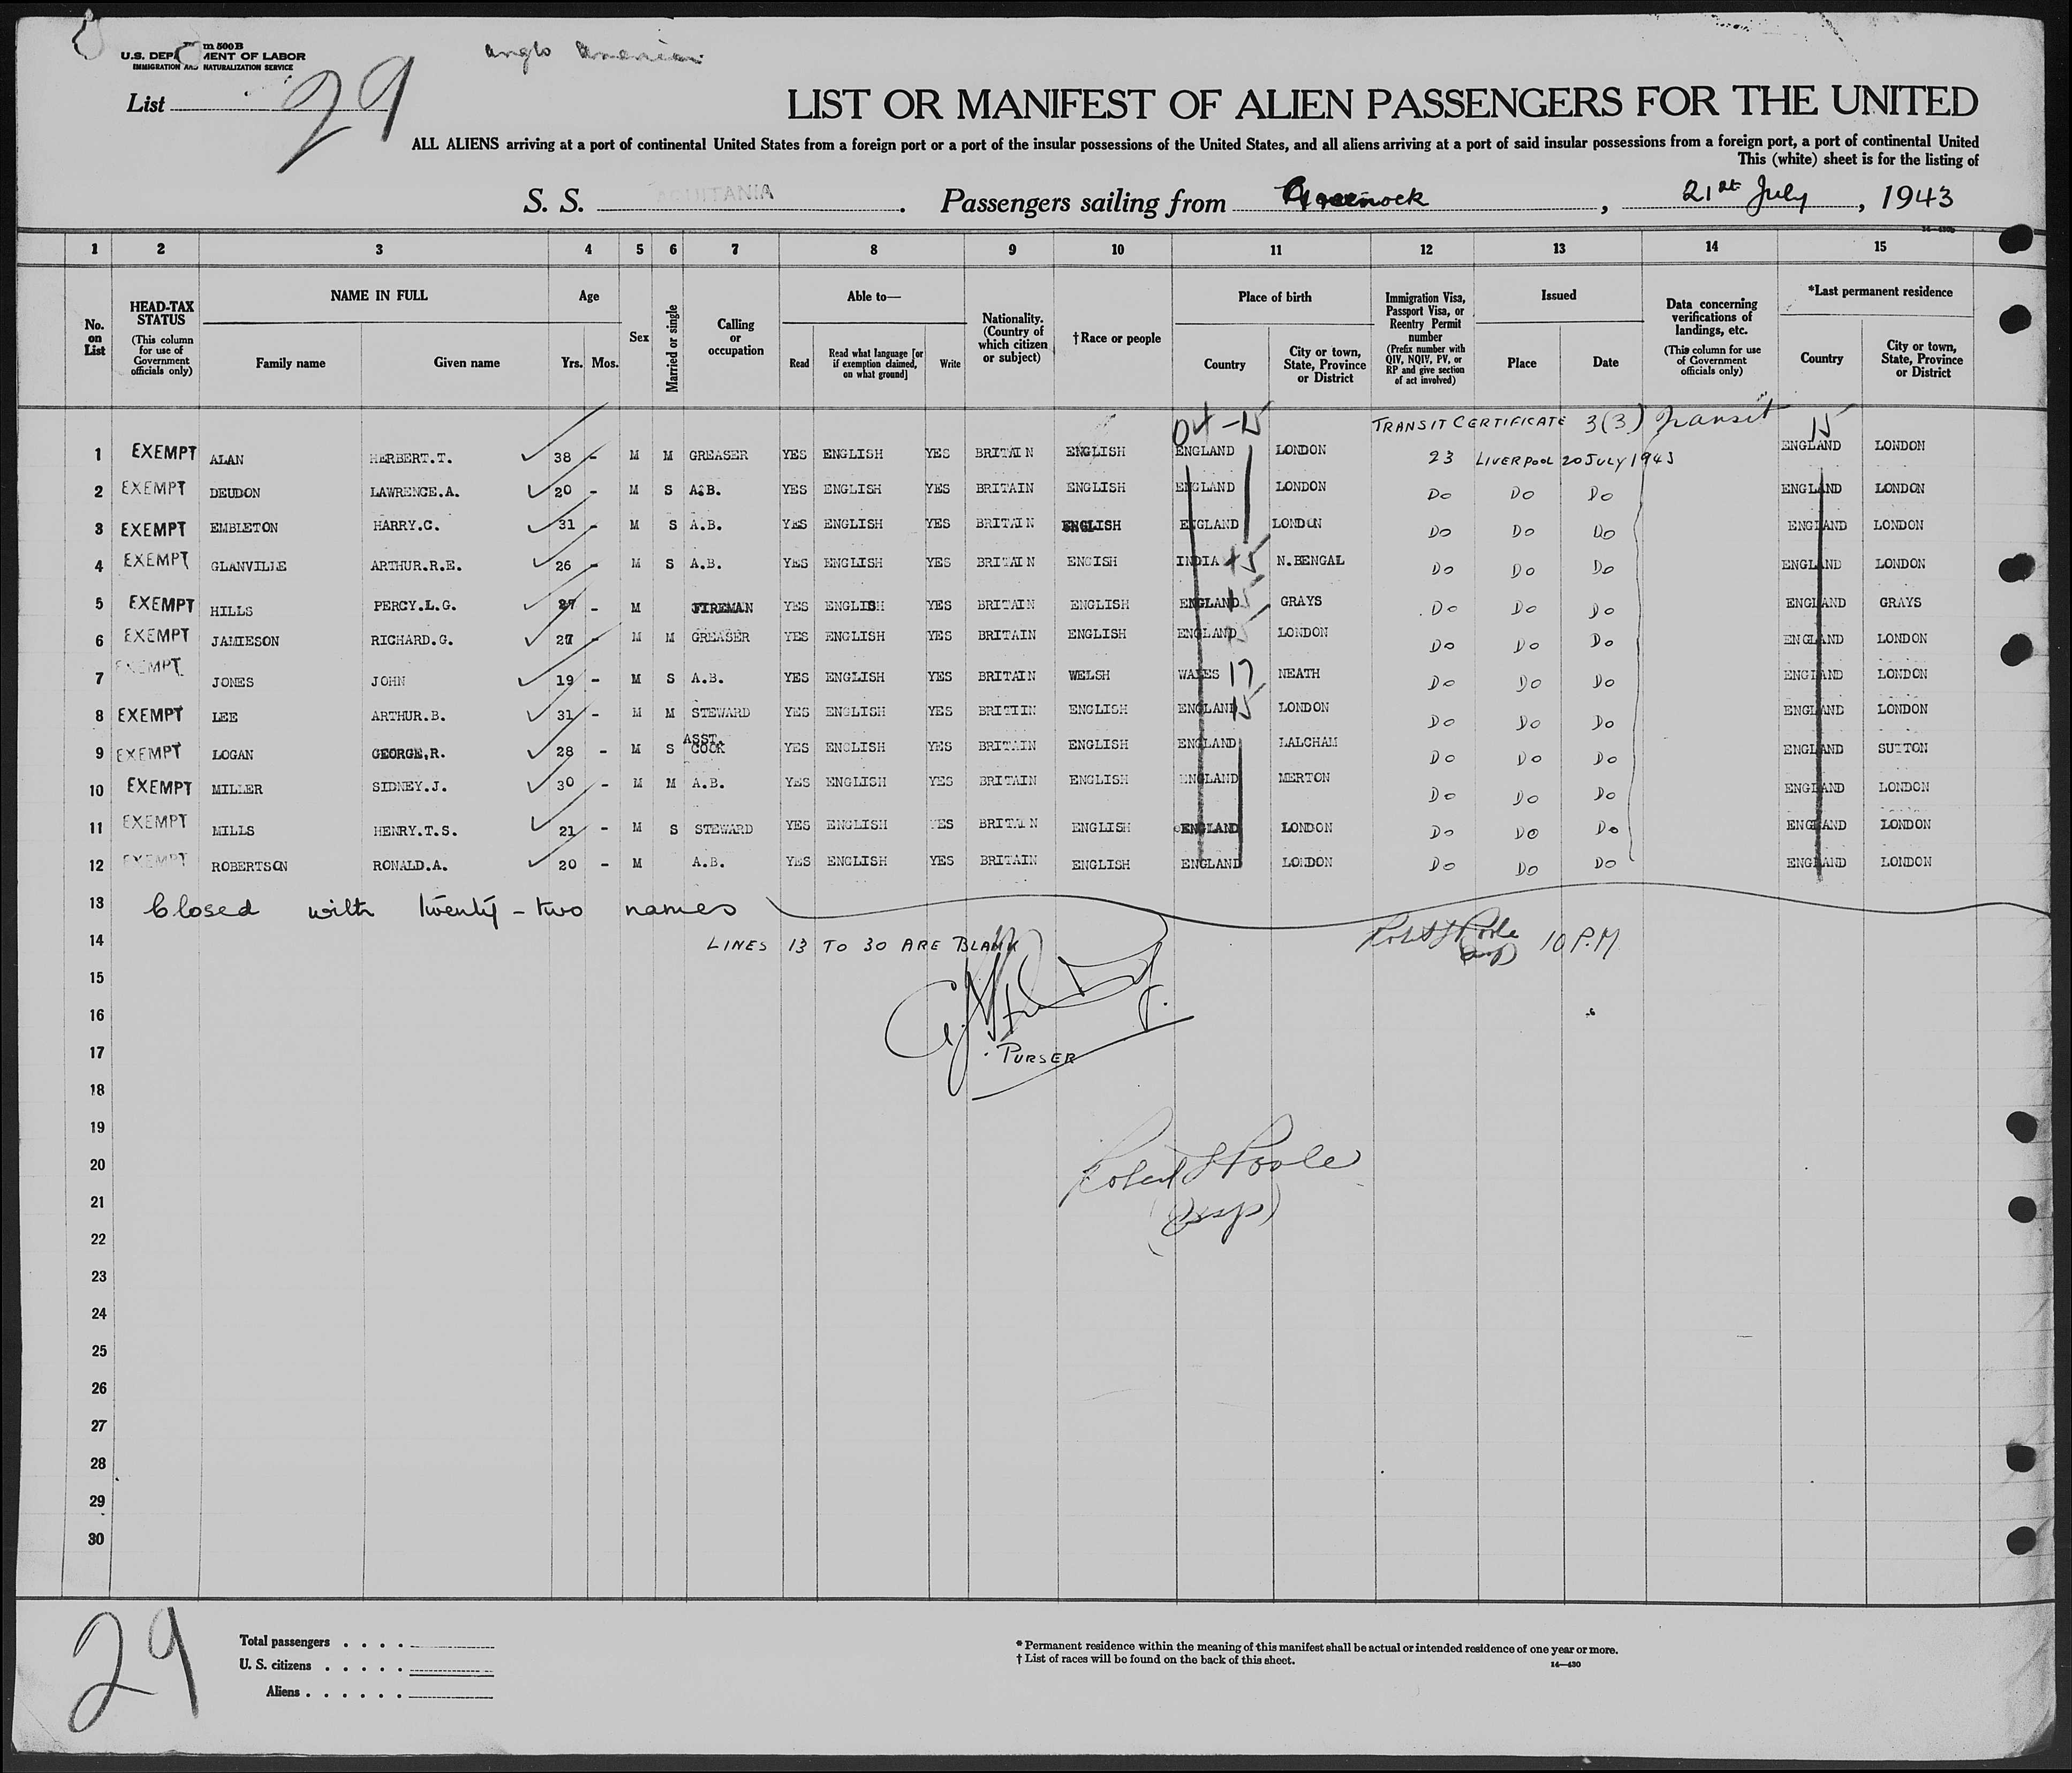 m 500B
U.S. DEP MENT OF LABOR
IMMIGRATION AND NATURALIZATION SERVICE
Anglo American
List 29
LIST OR MANIFEST OF ALIEN PASSENGERS FOR THE UNITED
ALL ALIENS arriving at a port of continental United States from a foreign port or a port of the insular possessions of the United States, and all aliens arriving at a port of said insular possessions from a foreign port, a port of continental United
This (white) sheet is for the listing of
S. S. AQUITANIA. Passengers sailing from Greenock, 21st July, 1943
1 2 3 4 5 6 7 8 9 10 11 12 13 14 15
No. on List
HEAD-TAX STATUS (This column for use of Government officials only)
NAME IN FULL
Family name Given name
Age
Yrs. Mos.
Sex
Married or single
Calling or occupation
Able to—
Read
Read what language [or if exemption claimed, on what ground]
Write
Nationality. (Country of which citizen or subject)
†Race or people
Place of birth
Country
City or town, State, Province or District
Immigration Visa, Passport Visa, or Reentry Permit number (Prefix number with QIV, NQIV, PV, or RP and give section of act involved)
Issued
Place Date
Data concerning verifications of landings, etc. (This column for use of Government officials only)
*Last permanent residence
Country
City or town, State, Province or District
TRANSIT CERTIFICATE 3(3) Transit 15
1 EXEMPT ALAN HERBERT.T. 38 - M M GREASER YES ENGLISH YES BRITAIN ENGLISH ENGLAND LONDON 23 LIVERPOOL 20 JULY 1943 ENGLAND LONDON
2 EXEMPT DEUDON LAWRENCE.A. 20 - M S A.B. YES ENGLISH YES BRITAIN ENGLISH ENGLAND LONDON Do Do Do ENGLAND LONDON
3 EXEMPT EMBLETON HARRY.C. 31 - M S A.B. YES ENGLISH YES BRITAIN ENGLISH ENGLAND LONDON Do Do Do ENGLAND LONDON
4 EXEMPT GLANVILLE ARTHUR.R.E. 26 - M S A.B. YES ENGLISH YES BRITAIN ENGISH INDIA 45 N.BENGAL Do Do Do ENGLAND LONDON
5 EXEMPT HILLS PERCY.L.G. 27 - M FIREMAN YES ENGLISH YES BRITAIN ENGLISH ENGLAND 15 GRAYS Do Do Do ENGLAND GRAYS
6 EXEMPT JAMIESON RICHARD.G. 27 - M M GREASER YES ENGLISH YES BRITAIN ENGLISH ENGLAND 15 LONDON Do Do Do ENGLAND LONDON
7 EXEMPT JONES JOHN 19 - M S A.B. YES ENGLISH YES BRITAIN WELSH WALES 17 NEATH Do Do Do ENGLAND LONDON
8 EXEMPT LEE ARTHUR.B. 31 - M M STEWARD YES ENGLISH YES BRITIIN ENGLISH ENGLAND 15 LONDON Do Do Do ENGLAND LONDON
9 EXEMPT LOGAN GEORGE,R. 28 - M S ASST. COOK YES ENGLISH YES BRITAIN ENGLISH ENGLAND LALCHAM Do Do Do ENGLAND SUTTON
10 EXEMPT MILLER SIDNEY.J. 30 - M M A.B. YES ENGLISH YES BRITAIN ENGLISH ENGLAND MERTON Do Do Do ENGLAND LONDON
11 EXEMPT MILLS HENRY.T.S. 21 - M S STEWARD YES ENGLISH YES BRITAIN ENGLISH ENGLAND LONDON Do Do Do ENGLAND LONDON
12 EXEMPT ROBERTSON RONALD.A. 20 - M A.B. YES ENGLISH YES BRITAIN ENGLISH ENGLAND LONDON Do Do Do ENGLAND LONDON
13 Closed with twenty-two names
14 LINES 13 TO 30 ARE BLANK Robert J Poole 10 P.M
15
16
17 PURSER
18
19
20 Robert J Poole
21
22
23
24
25
26
27
28
29
30
29
Total passengers
U. S. citizens
Aliens
* Permanent residence within the meaning of this manifest shall be actual or intended residence of one year or more.
† List of races will be found on the back of this sheet.
14—430